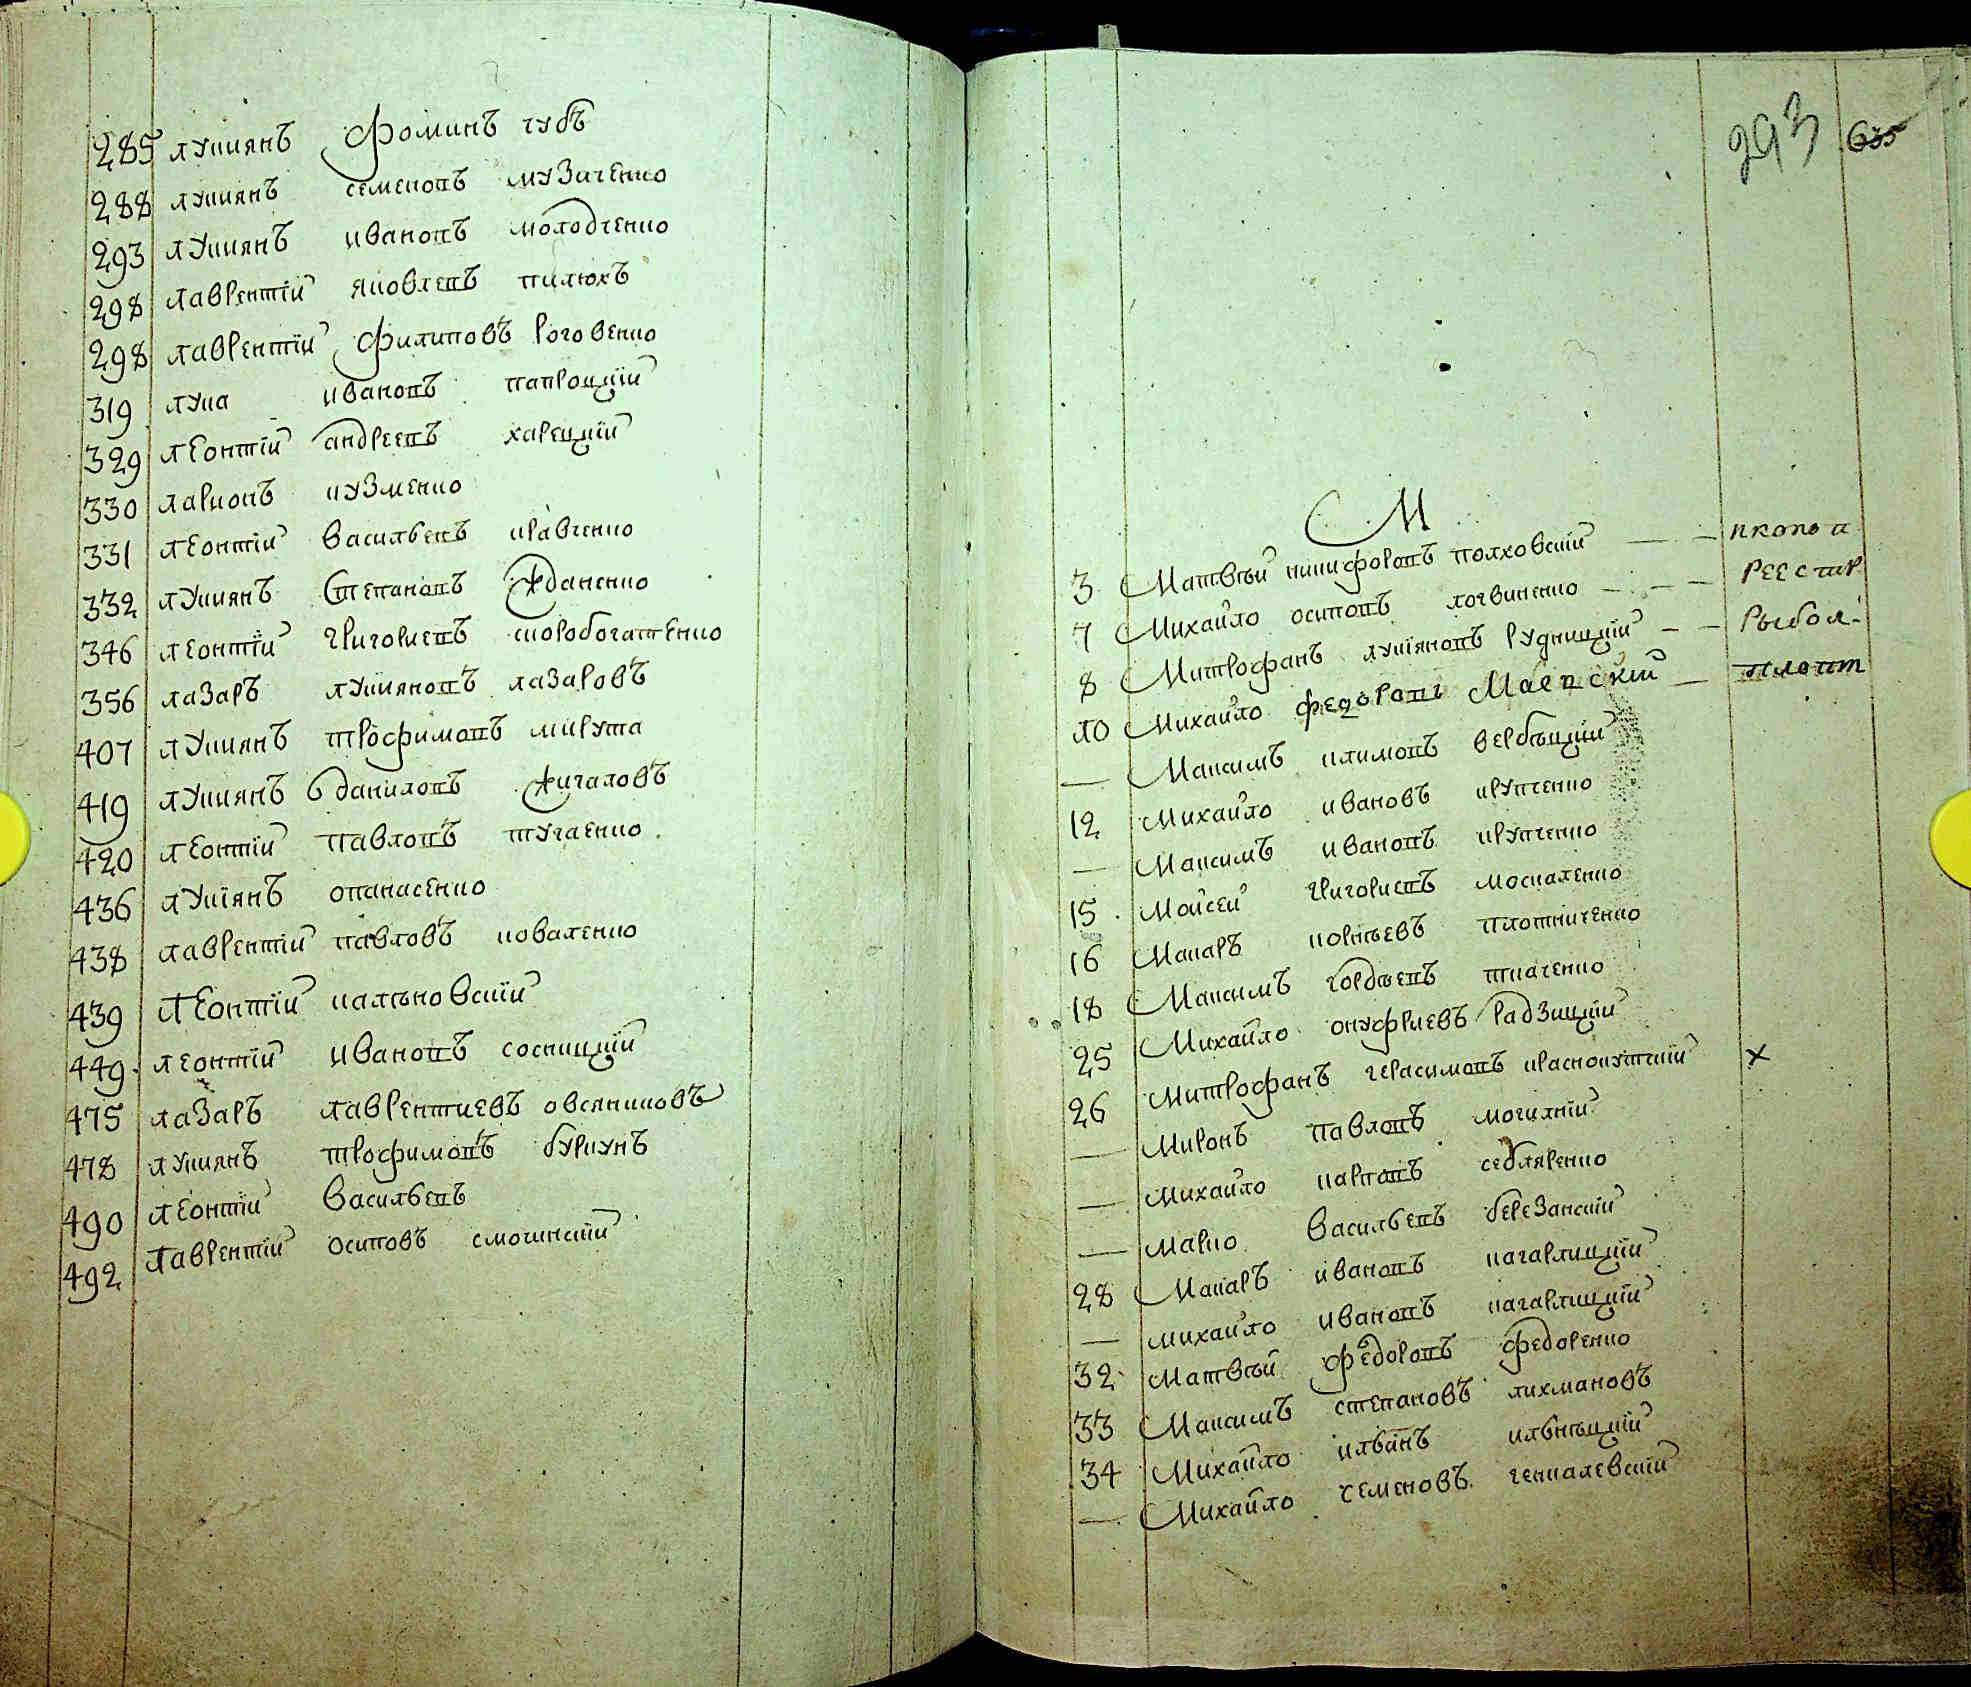 285 лукиянъ Фоминъ губъ
288 лукиянъ семеновъ музиченко
293 лукиянъ ивановъ молодченко
298 лаврентїй яковлевъ пилюхъ
298 лаврентїй Филиповъ роговенко
319 лука ивановъ папроцкїй
329 леонтїй андреевъ харецкїй
330 ларионъ кузменко
331 леонтїй васильевъ кравченко
332 лукиянъ степановъ жданенко
346 леонтїй григориевъ скоробогатенко
356 лазаръ лукияновъ лазаровъ
407 лукиянъ трофимовъ мирута
419 лукиянъ даниловъ жигаловъ
420 леонтїй павловъ тугаенко
436 лукїянъ опанасенко
438 лаврентїй павловъ коваленко
439 леонтїй калѣновскїй
449 леонтїй ивановъ сосницкїй
475 лазаръ лаврентиевъ овсяниковъ
478 лукиянъ трофимовъ буркунъ
490 леонтїй васильевъ
492 лаврентїй осиповъ смогинскїй
293 635
М
3 Матвѣй никифоровъ полховскїй — — пкопо и
7 Михайло осиповъ логвиненко — — — реестр
8 Митрофанъ лукїяновъ рудницкїй — — рыбол:
10 Михайло федоровъ Маевскїй — плотт
— Максимъ климовъ вербѣцкїй
12 Михайло ивановъ крупченко
— Максимъ ивановъ крупченко
15 Мойсей григориевъ москаленко
16 Макаръ корнѣевъ плотниченко
18 Максимъ гордѣевъ ткаченко
25 Михайло онуфриевъ радзицкїй
26 Митрофанъ герасимовъ краснокутскїй ×
— Миронъ павловъ могилнїй
— Михайло карповъ седляренко
— марко васильевъ березанскїй
28 Макаръ ивановъ кагарлицкїй
— михайло ивановъ кагарлицкїй
32 Матвѣй федоровъ федоренко
33 Максимъ степановъ лихмановъ
34 Михайло илванъ илвницкїй
— Михайло семеновъ генкалевскїй